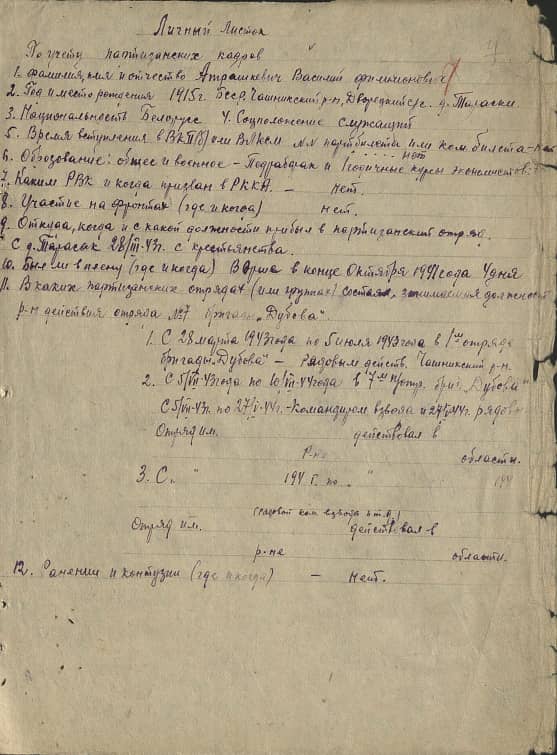 Личный Листок
По учету партизанских кадров
1. Фамилия, имя и отчество Атрашкевич Василий Филимонович
2. Год и место рождения 1915 г. БССР, Чашникский р-н, Дворецкий с/с. д. Тараски
3. Национальность Белорус 4. Соцположение служащий
5. Время вступления в ВКП(б) или ВЛКСМ №№ партбилета или ком. билета -
нет
6. Образование: общее и военное - и 1 годичные курсы экономистов.
7. Каким РВК и когда призван в РККА. - нет.
8. Участие на фронтах (где и когда) нет.
9. Откуда, когда и с какой должности прибыл в партизанский отряд
С д. Тарасак 28/III-43 г. с крестьянства.
10. Был ли в плену (где и когда) В Орша в конце Октября 1941 года 4 дня
11. В каких партизанских отрядах (или группах) состоял, занимаемая должность
р-н действия отряда №7 бригады "Дубова"
1. С 28 марта 1943 года по 5 июля 1943 года в 1ом отряде
бригады "Дубова" - рядовым действ. Чашникский р-н.
2. С 5/VII-43 года по 10/VII-44 года в 7м п/отр. бриг. "Дубова"
С 5/VII-43 г. по 27/I-44 г. - командиром взвода и 27/I-44 г. рядовы
Отряд им. действовал в
р-не области.
3. С " 194 г. по " 194
(рядовой ком взвода и т.д.)
Отряд им. действовал в
р-не области.
12. Ранении и контузии (где и когда) - нет.